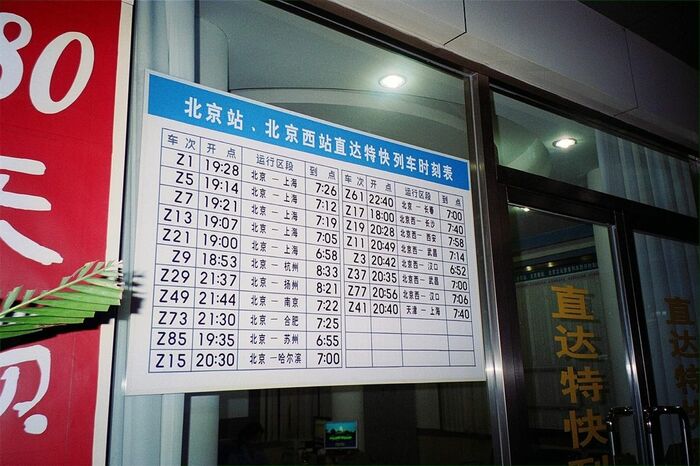 80
天
贝
北京站、北京西站直达特快列车时刻表
车次 开点 运行区段 到点 车次 开点 运行区段 到点
Z1 19:28 北京—上海 7:26 Z61 22:40 北京—长春 7:00
Z5 19:14 北京—上海 7:12 Z17 18:00 北京西—长沙 7:40
Z7 19:21 北京—上海 7:19 Z19 20:28 北京西—西安 7:58
Z13 19:07 北京—上海 7:05 Z11 20:49 北京西—武昌 7:14
Z21 19:00 北京—上海 6:58 Z3 20:42 北京西—汉口 6:52
Z9 18:53 北京—杭州 8:33 Z37 20:35 北京西—武昌 7:00
Z29 21:37 北京—扬州 8:21 Z77 20:56 北京西—汉口 7:06
Z49 21:44 北京—南京 7:22 Z41 20:40 天津—上海 7:40
Z73 21:30 北京—合肥 7:25
Z85 19:35 北京—苏州 6:55
Z15 20:30 北京—哈尔滨 7:00
直达特快列
直达特快